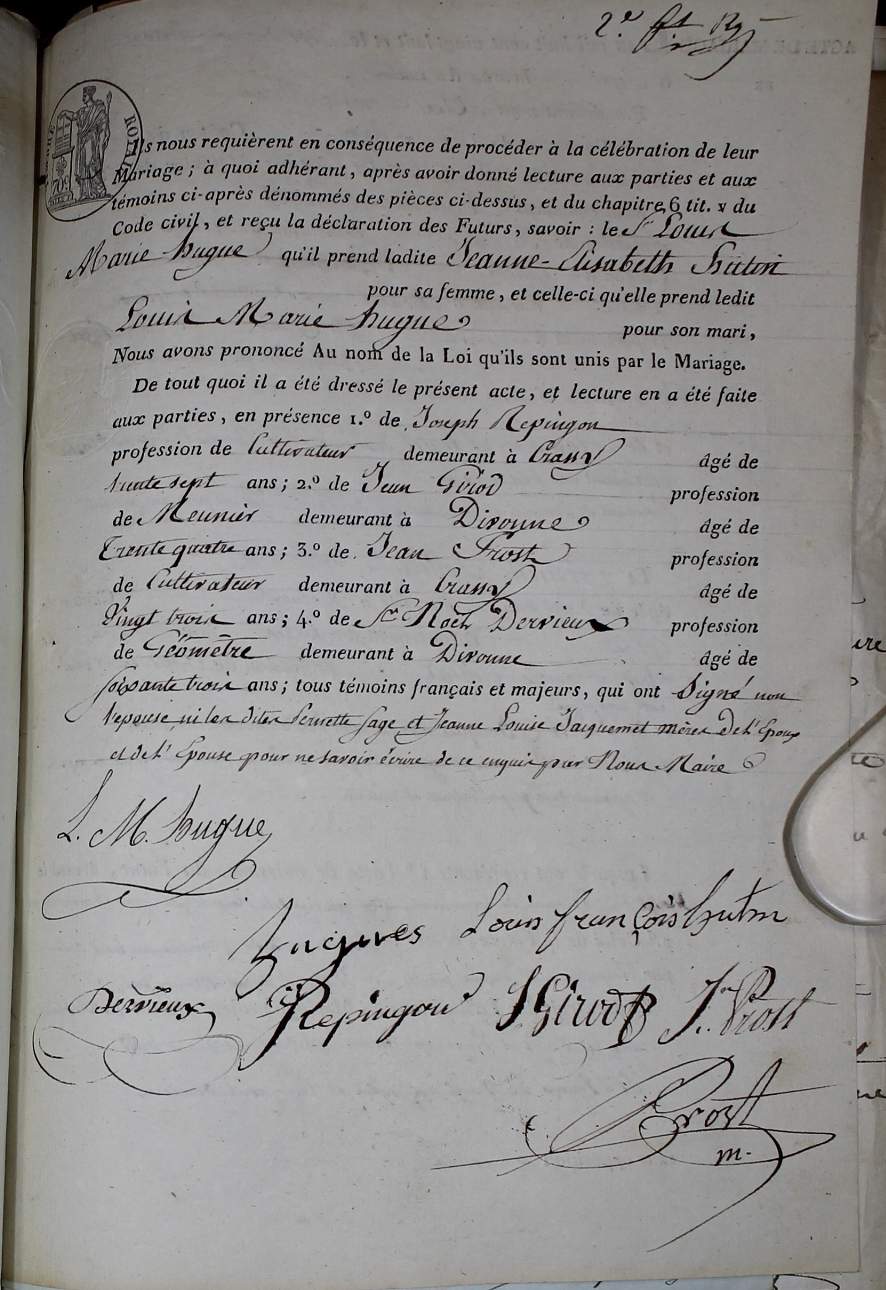 2.e
Ils nous requièrent en conséquence de procéder à la célébration de leur
Mariage ; à quoi adhérant, après avoir donné lecture aux parties et aux
témoins ci-après dénommés des pièces ci-dessus, et du chapitre 6 tit. v du
Code civil, et reçu la déclaration des Futurs, savoir : le Sr Louis
Marie hugue qu'il prend ladite Jeanne-Elisabeth hutin
pour sa femme, et celle-ci qu'elle prend ledit
Louis Marie hugue pour son mari,
Nous avons prononcé Au nom de la Loi qu'ils sont unis par le Mariage.
De tout quoi il a été dressé le présent acte, et lecture en a été faite
aux parties, en présence 1.o de Joseph Repingon
profession de Cultivateur demeurant à Crassy âgé de
trente sept ans ; 2.o de Jean Girod profession
de Meunier demeurant à Divonne âgé de
Trente quatre ans ; 3.o de Jean Prost profession
de Cultivateur demeurant à Crassy âgé de
Vingt trois ans ; 4.o de Sr Noël Dervieux profession
de Géomètre demeurant à Divonne âgé de
soixante trois ans ; tous témoins français et majeurs, qui ont Signé non
l'epouse ni les dites Pernette sage et Jeanne Louise Jacquemet mères De l'Epoux
et de l'Epouse pour ne savoir écrire de ce enquis par Nous Maire
L. M. hugue
hugues Louis françois hutin
Dervieux Repingon J Girod Jn Prost
Prost
m.